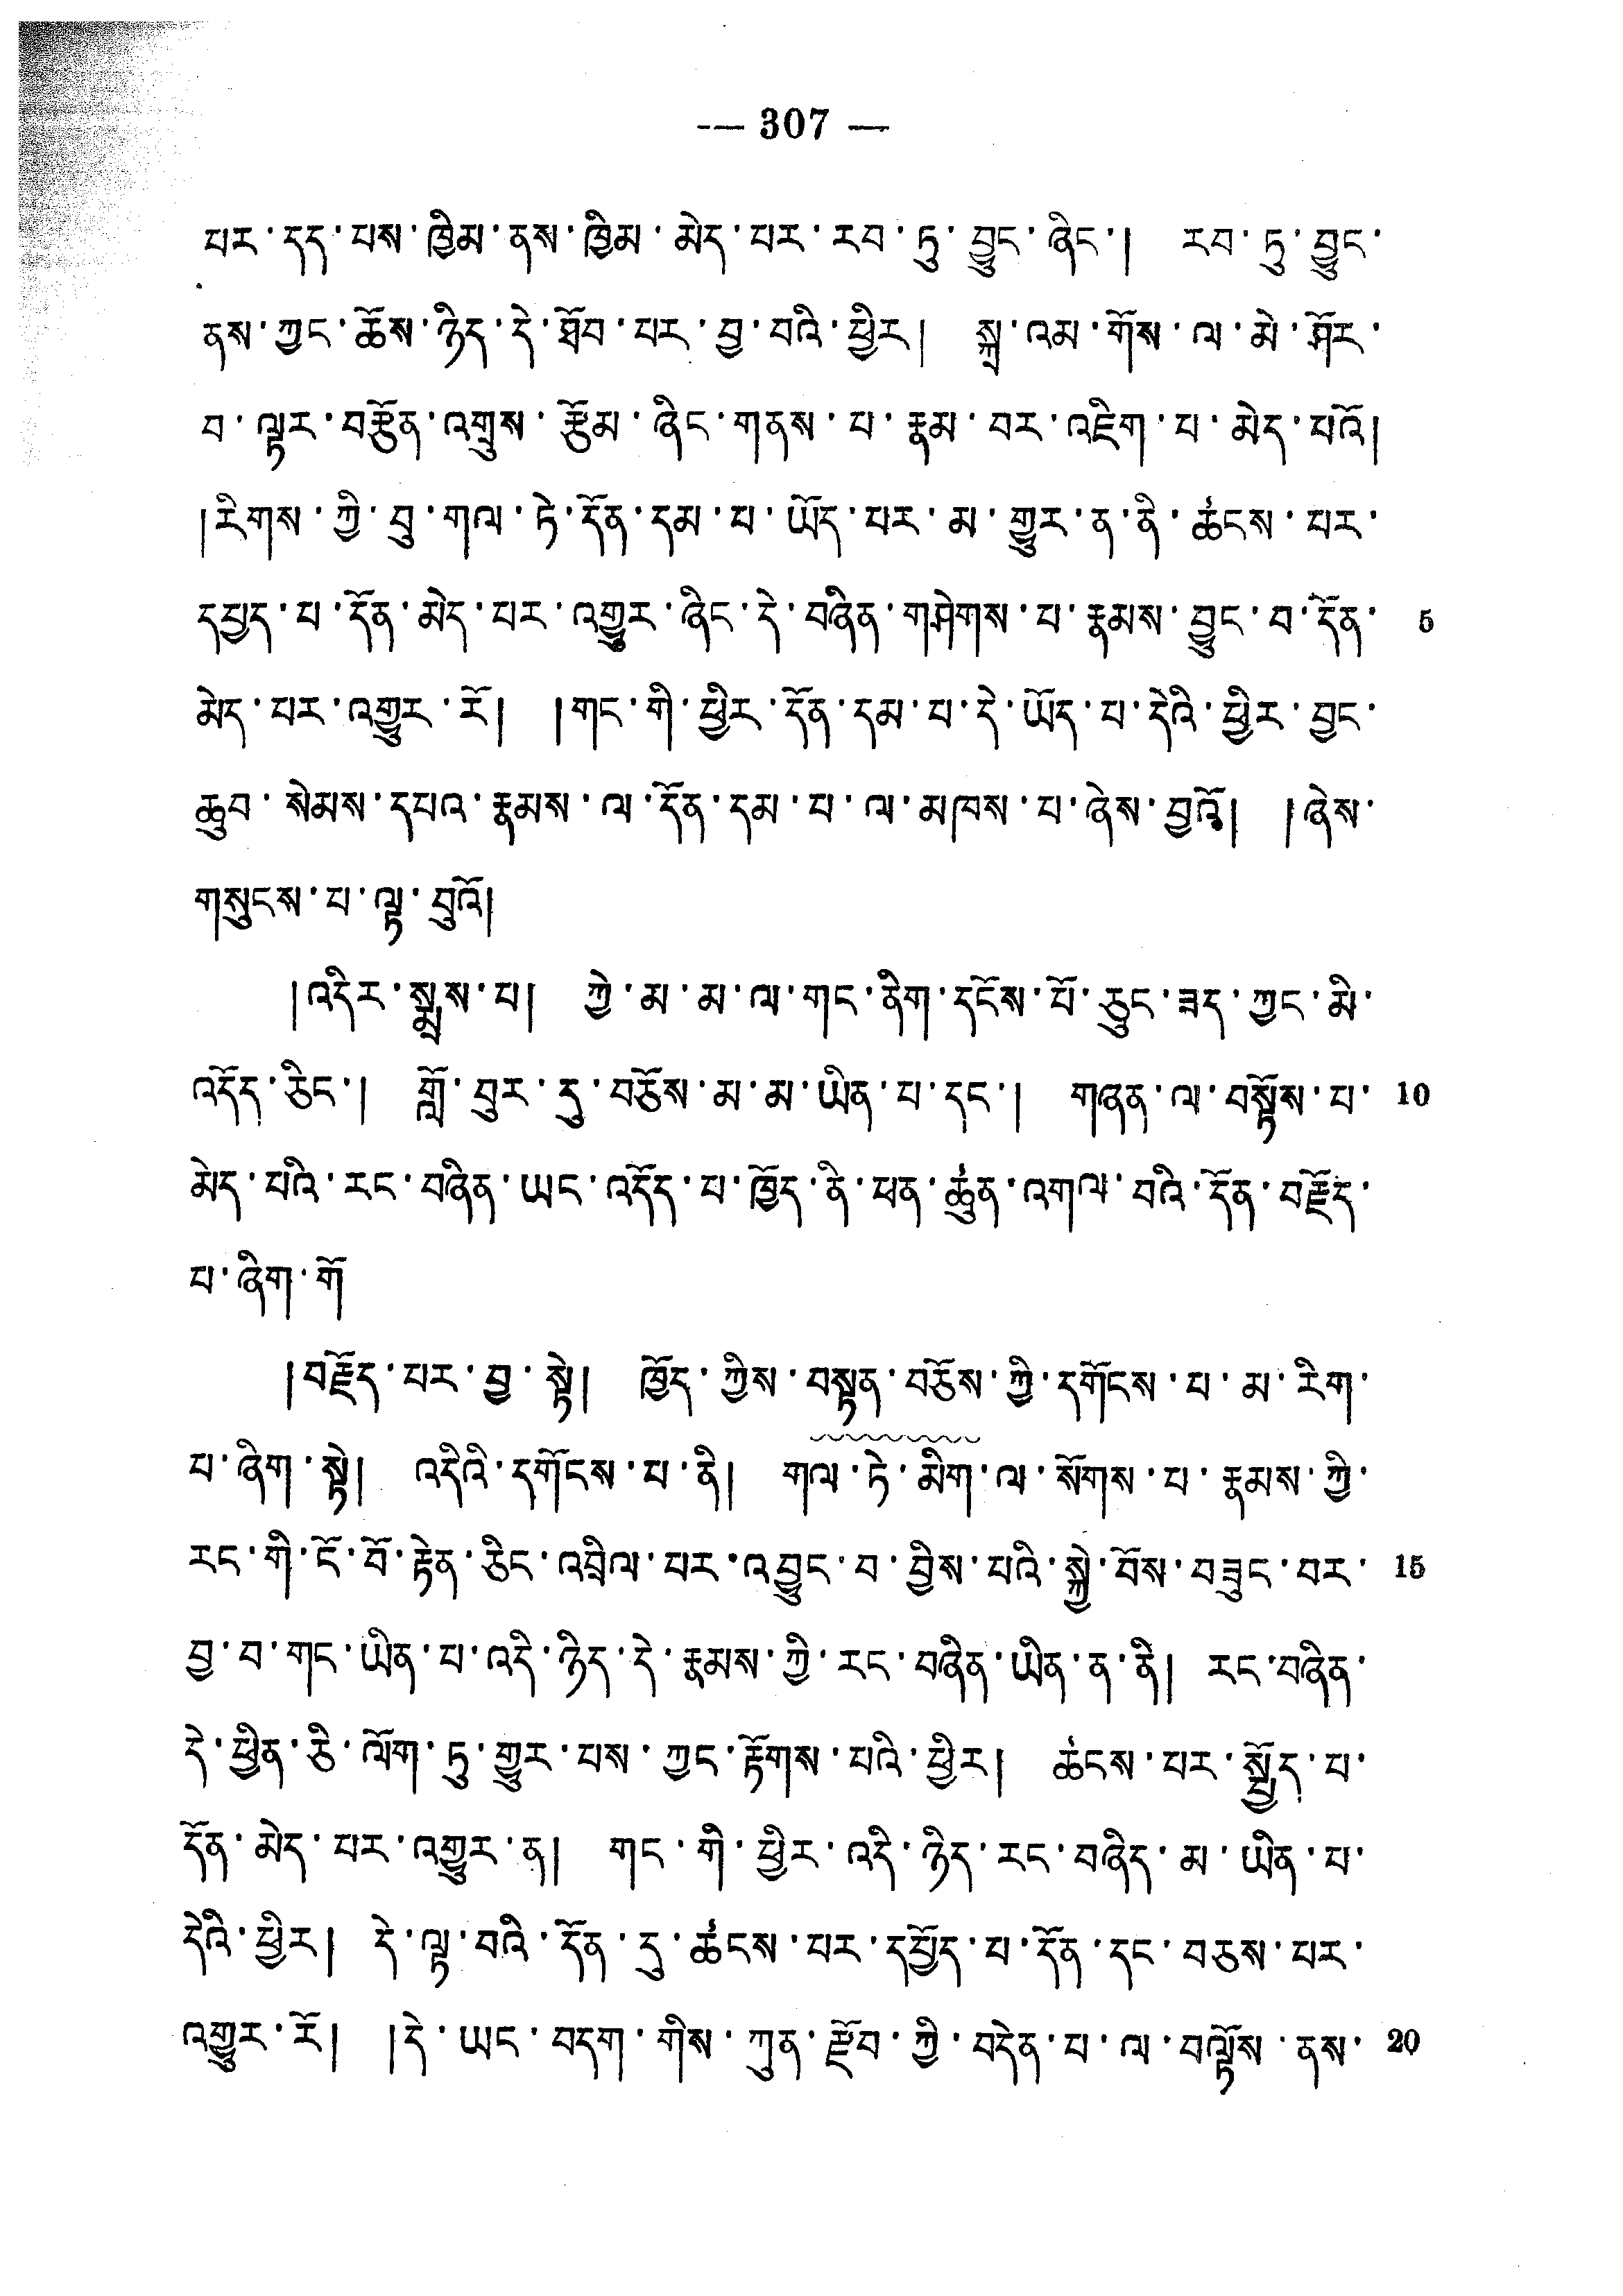 — 307 —
པར་དད་པས་ཁྱིམ་ནས་ཁྱིམ་མེད་པར་རབ་ཏུ་བྱུང་ཞིང་། རབ་ཏུ་བྱུང་
ནས་ཀྱང་ཆོས་ཉིད་དེ་ཐོབ་པར་བྱ་བའི་ཕྱིར། སྐྲ་འམ་གོས་ལ་མེ་ཤོར་
བ་ལྟར་བརྩོན་འགྲུས་རྩོམ་ཞིང་གནས་པ་རྣམ་བར་འཇིག་པ་མེད་པའོ།
།རིགས་ཀྱི་བུ་གལ་ཏེ་དོན་དམ་པ་ཡོད་པར་མ་གྱུར་ན་ནི་ཚངས་པར་
དཔྱད་པ་དོན་མེད་པར་འགྱུར་ཞིང་དེ་བཞིན་གཤེགས་པ་རྣམས་བྱུང་བ་དོན་ 5
མེད་པར་འགྱུར་རོ། །གང་གི་ཕྱིར་དོན་དམ་པ་དེ་ཡོད་པ་དེའི་ཕྱིར་བྱང་
ཆུབ་སེམས་དཔའ་རྣམས་ལ་དོན་དམ་པ་ལ་མཁས་པ་ཞེས་བྱའོ། །ཞེས་
གསུངས་པ་ལྟ་བུའོ།
།འདིར་སྨྲས་པ། ཀྱེ་མ་མ་ལ་གང་ཞིག་དངོས་པོ་ཅུང་ཟད་ཀྱང་མི་
འདོད་ཅིང་། གློ་བུར་དུ་བཅོས་མ་མ་ཡིན་པ་དང་། གཞན་ལ་བལྟོས་པ་ 10
མེད་པའི་རང་བཞིན་ཡང་འདོད་པ་ཁྱོད་ནི་ཕན་ཚུན་འགལ་བའི་དོན་བརྗོད་
པ་ཞིག་གོ
།བརྗོད་པར་བྱ་སྟེ། ཁྱོད་ཀྱིས་བསྟན་བཅོས་ཀྱི་དགོངས་པ་མ་རིག་
པ་ཞིག་སྟེ། འདིའི་དགོངས་པ་ནི། གལ་ཏེ་མིག་ལ་སོགས་པ་རྣམས་ཀྱི་
རང་གི་ངོ་བོ་རྟེན་ཅིང་འབྲེལ་པར་འབྱུང་བ་བྱིས་པའི་སྐྱེ་བོས་བཟུང་བར་ 15
བྱ་བ་གང་ཡིན་པ་འདི་ཉིད་དེ་རྣམས་ཀྱི་རང་བཞིན་ཡིན་ན་ནི། རང་བཞིན་
དེ་ཕྱིན་ཅི་ལོག་ཏུ་གྱུར་པས་ཀྱང་རྟོགས་པའི་ཕྱིར། ཚངས་པར་སྤྱོད་པ་
དོན་མེད་པར་འགྱུར་ན། གང་གི་ཕྱིར་འདི་ཉིད་རང་བཞིད་མ་ཡིན་པ་
དེའི་ཕྱིར། དེ་ལྟ་བའི་དོན་དུ་ཚངས་པར་དཔྱོད་པ་དོན་དང་བཅས་པར་
འགྱུར་རོ། །དེ་ཡང་བདག་གིས་ཀུན་རྫོབ་ཀྱི་བདེན་པ་ལ་བལྟོས་ནས་ 20